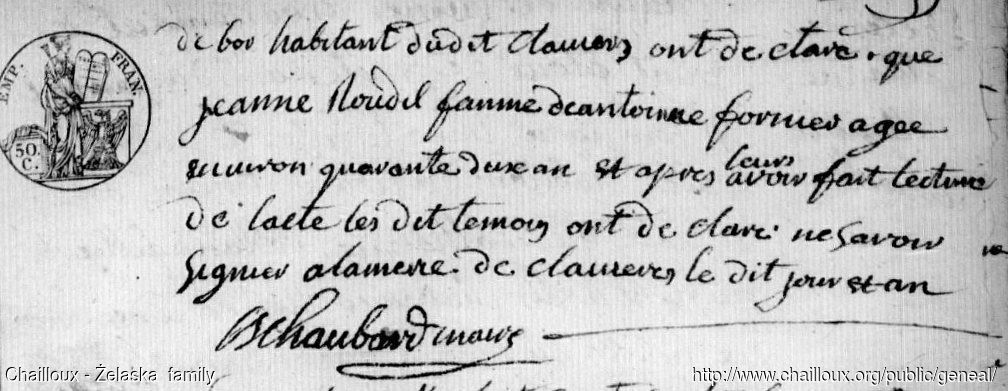 EMP. FRAN.
50.
C.
de bor habitant dudit Claviers ont de claré que
jeanne Roudil famme deantoinne fornier agee
environ quarante dux an et apres leurs avoir fait lecture
de lacte les dit temoins ont de claré ne Savoir
Signier alamerie de Clavieres le dit jour et an
Bchaubard maire
Chailloux - Żelaska family
http://www.chailloux.org/public/geneal/